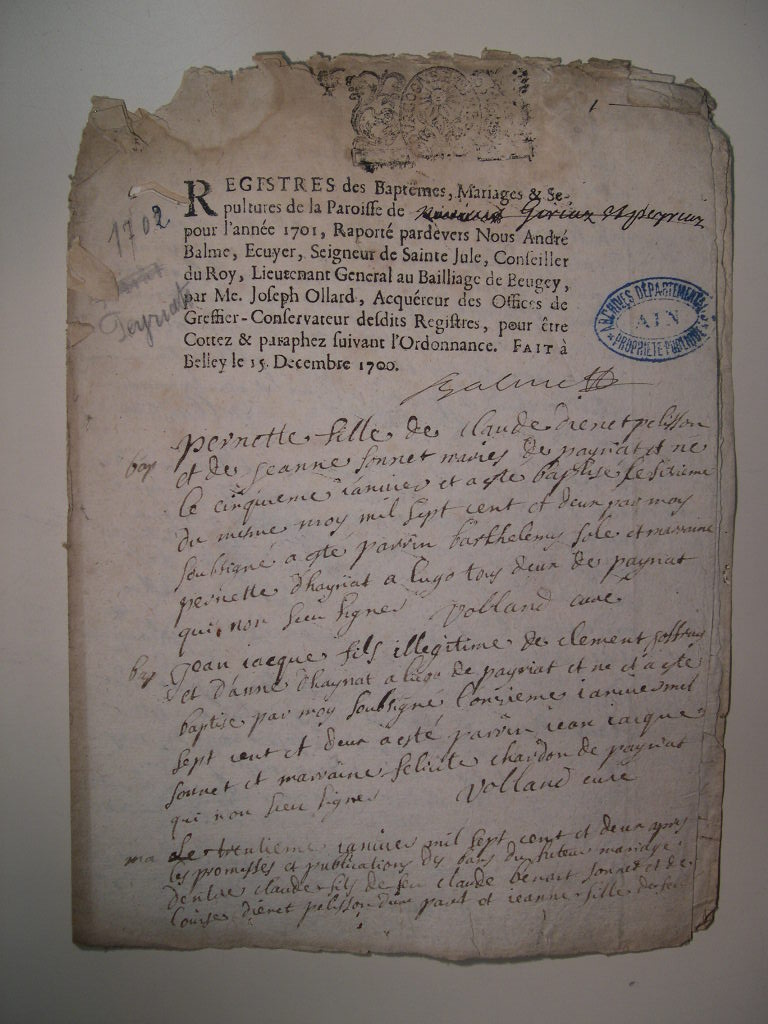 1702
Peyriat
REGISTRES des Baptêmes, Mariages & Se-
pultures de la Paroisse de Gerieu et peyriat
pour l'année 1701, Raporté pardevers Nous André
Balme, Ecuyer, Seigneur de Sainte Jule, Conseiller
du Roy, Lieutenant General au Bailliage de Beugey,
par Me. Joseph Ollard, Acquéreur des Offices de
Greffier-Conservateur desdits Registres, pour être
Cottez & paraphez suivant l'Ordonnance. FAIT à
Belley le 15. Decembre 1700.
Balme
ARCHIVES DÉPARTEMENTALES
AIN
PROPRIÉTÉ PUBLIQUE
bap
pernette fille de claude dienet pelisson
et de jeanne sonnet maries de payriat et ne
le cinquieme ianvier et a esté baptisé le sixieme
du mesme moy mil sept cent et deux par moy
soubsigné a esté parrin barthelemy et marraine
pernette dhayriat tous deux de payriat
qui non sceu signer Volland curé
bap
jean iacque fils illegitime de clement
et d'anne dhayriat de payriat et ne et a esté
baptise par moy soubsigné l'onzieme ianvier mil
sept cent et deux a esté parrin iean iacque
sonnet et marraine felicite chardon de payriat
qui non sceu signer Volland curé
ma
Le ianvier mil sept cent et deux apres
les promesses et publications des bans du futeur mariage
dentre claude fils de feu claude benoit sonnet et de
Louise dienet pelisson dune part et ieanne fille de feu